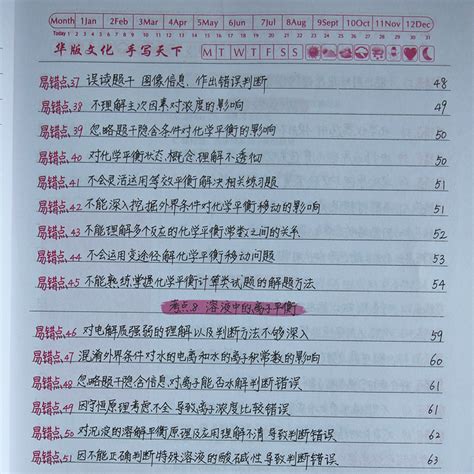 Month 1Jan 2Feb 3Mar 4Apr 5May 6Jun 7Jul 8Aug 9Sep 10Oct 11Nov 12Dec
Today 1 2 3 4 5 6 7 8 9 10 11 12 13 14 15 16 17 18 19 20 21 22 23 24 25 26 27 28 29 30 31
华版文化 手写天下 M T W T F S S
易错点37 误读题干 图像信息,作出错误判断 48
易错点38 不理解主次因素对浓度的影响 49
易错点.39 忽略题干隐含条件对化学平衡的影响 50
易错点.40 对化学平衡状态,概念,理解不透彻 50
易错点.41 不会灵活运用等效平衡解决相关练习题 51
易错点.42 不能深入挖掘外界条件对化学平衡移动的影响 51
易错点.43 不能理解多个反应的化学平衡常数之间的关系 52
易错点.44 不会运用变途径解化学平衡移动问题 53
易错点.45 不能熟练掌握化学平衡计算类试题的解题方法 54
考点.8 溶液中的离子平衡
易错点.46 对电解质强弱的理解以及判断方法不够深入 59
易错点.47 混淆外界条件对水的电离和水的离子积常数的影响 60
易错点.48 忽略题干隐含信息对离子能否水解判断错误 61
易错点.49 因守恒原理考虑不全 导致离子浓度比较错误 61
易错点.50 对沉淀的溶解平衡原理及应用理解不清 导致判断错误 62
易错点.51 因不能正确判断特殊溶液的酸碱性 导致判断错误 63